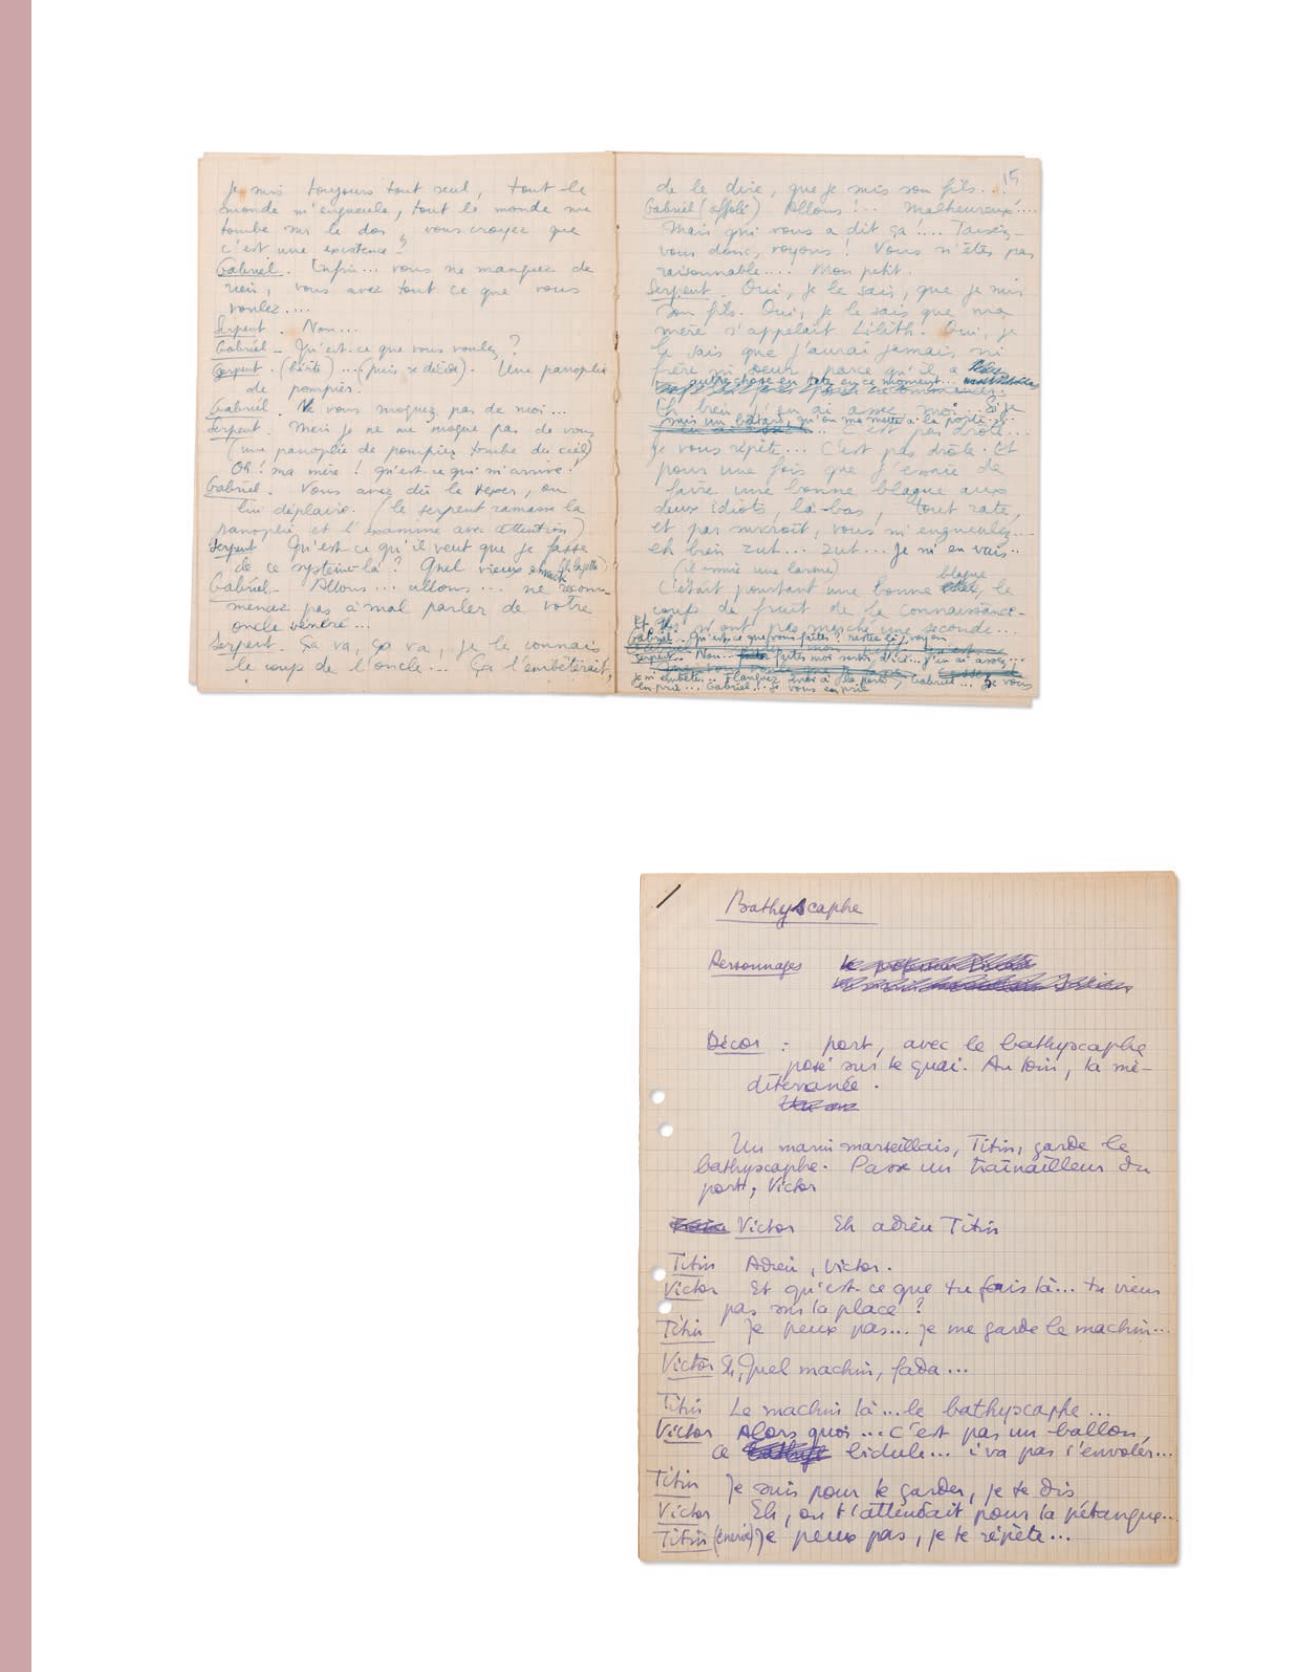 je suis toujours tout seul, tout le
monde m'engueule, tout le monde me
tombe sur le dos, vous croyez que
c'est une existence ?
Gabriel. Enfin... vous ne manquez de
rien, vous avez tout ce que vous
voulez....
Serpent. Non...
Gabriel – Qu'est-ce que vous voulez ?
Serpent. (hésite)...(puis se décide). Une panoplie
de pompier.
Gabriel. Ne vous moquez pas de moi...
Serpent. Mais je ne me moque pas de vous
(une panoplie de pompier tombe du ciel)
Oh ! ma mère ! qu'est-ce qui m'arrive !
Gabriel. Vous avez dû le vexer, ou
lui déplaire. (le serpent ramasse la
panoplie et l'examine avec attention)
Serpent Qu'est-ce qu'il veut que je fasse
de ce système-là ? Quel vieux
Gabriel – Allons... allons... ne recom-
mencez pas à mal parler de votre
oncle vénéré...
Serpent. Ça va, ça va, je le connais
le coup de l'oncle... Ça l'embêterait,
15
de le dire, que je suis son fils...
Gabriel (affolé) Allons !.. Malheureux !...
Mais qui vous a dit ça !.... Taisez-
vous donc, voyons ! Vous n'êtes pas
raisonnable.... Mon petit.
Serpent. Oui, je le sais, que je suis
son fils. Oui, je le sais que ma
mère s'appelait Lilith. Oui, je
le sais que j'aurai jamais ni
frère ni soeur, parce qu'il a
autre chose en tête en ce moment...
Eh bien j'en ai assez, moi. Si je
suis un bâtard, qu'on me mette à la porte...
C'est pas drôle...
je vous répète... C'est pas drôle. Et
pour une fois que j'essaie de
faire une bonne blague aux
deux idiots, là-bas, tout rate,
et par surcroît, vous m'engueulez...
eh bien zut... zut... Je m'en vais..
(il essuie une larme)
C'était pourtant une bonne blague, le
coup du fruit de la connaissance.
Et ils n'ont pas marché une seconde...
Gabriel. Qu'est-ce que vous faites ? restez là, voyons
Serpent. Non... faites moi sortir, d'ici... j'en ai assez...
je m'embête... Flanquez-moi à la porte, Gabriel... Je vous
en prie... Gabriel... Je vous en prie
Bathyscaphe
Personnages
Décor : port, avec le bathyscaphe
posé sur le quai. Au loin, la mé-
diterranée.
Un marin marseillais, Titin, garde le
bathyscaphe. Passe un traînailleur du
port, Victor
Victor Eh adieu Titin
Titin Adieu, Victor.
Victor Et qu'est-ce que tu fais là... tu viens
pas sur la place ?
Titin Je peux pas... je me garde le machin...
Victor Eh, Quel machin, fada...
Titin Le machin là...le bathyscaphe...
Victor Alors quoi...c'est pas un ballon,
ce bidule... i va pas s'envoler...
Titin Je suis pour le garder, je te dis
Victor Eh, on t'attendait pour la pétanque...
Titin (énervé) Je peux pas, je te répète...